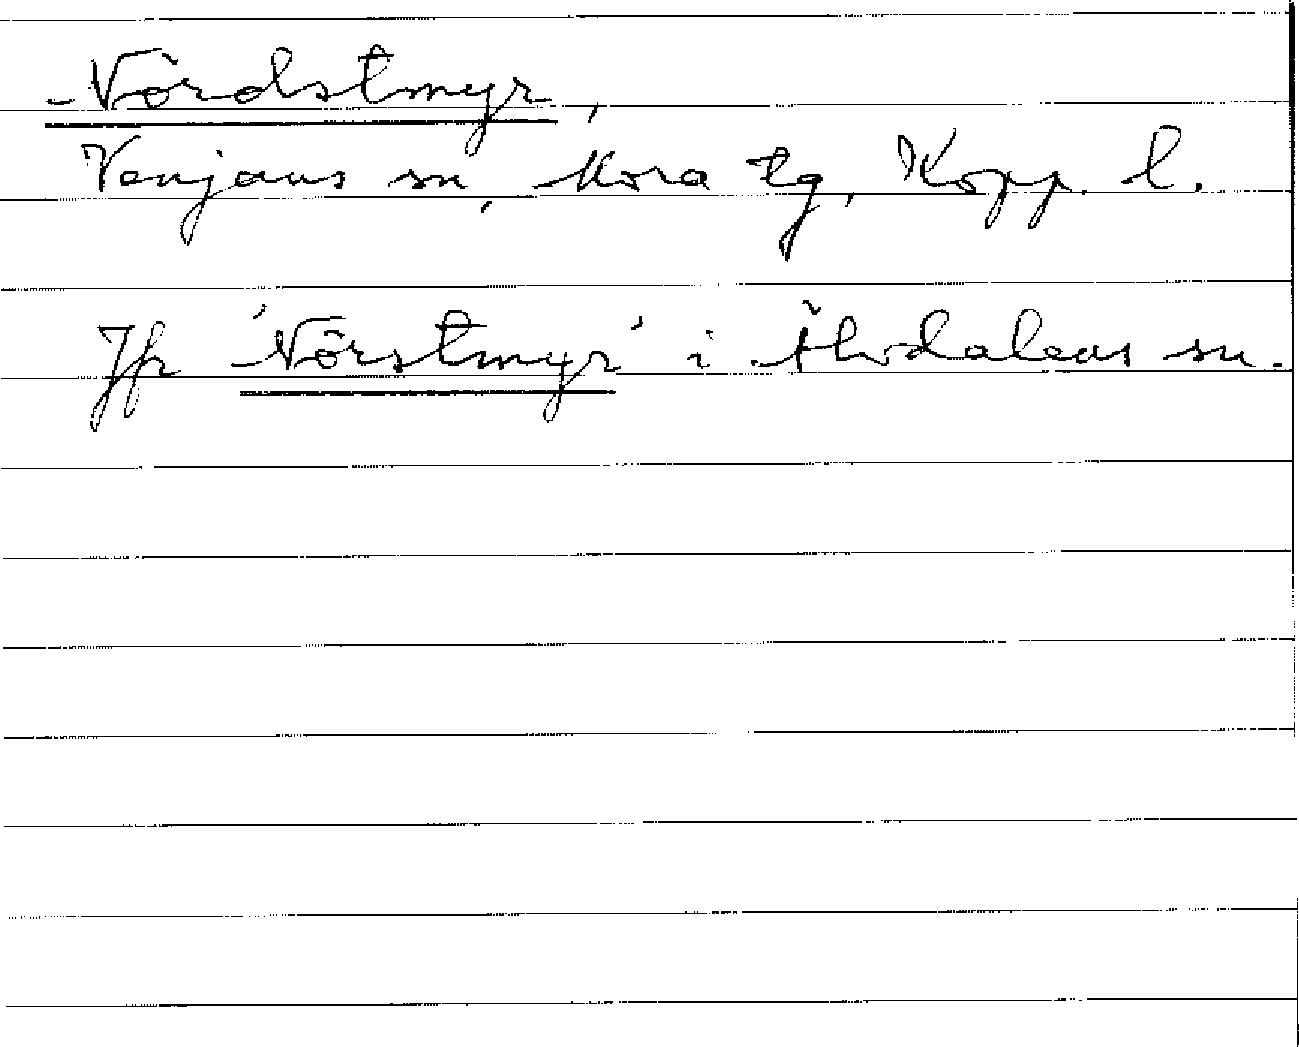 Nördstmyr,
Venjans sn, Mora tg, Kopp. l.
Jfr 'Nörstmyr' i Älvdalens sn.